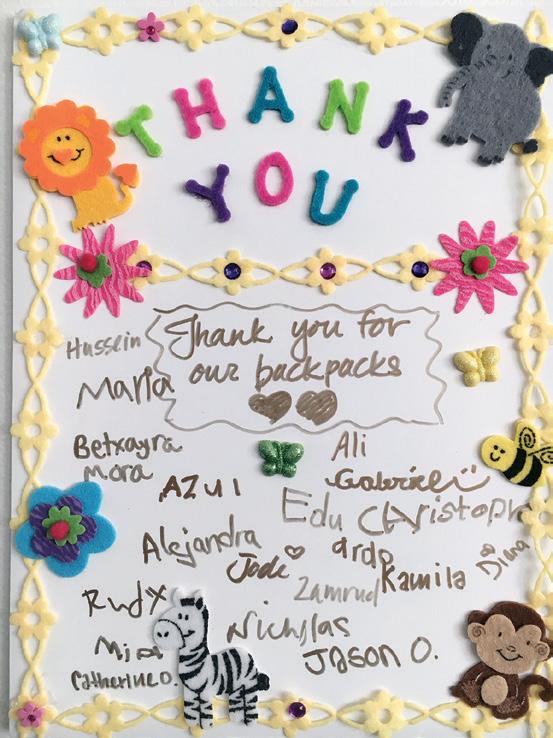 THANK
YOU
Thank you for
our backpacks
Hussein
Maria
Betxayra
Mora
AZUl
Ali
Gabriel
Edu Christoph
Alejandra
Jode
ardo
Kamila
Diana
Zamrud
Rudy
Nicholas
Jason O.
Catherine O.